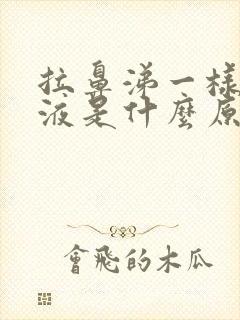 拉鼻涕一樣
液是什麼原
會飛的木瓜